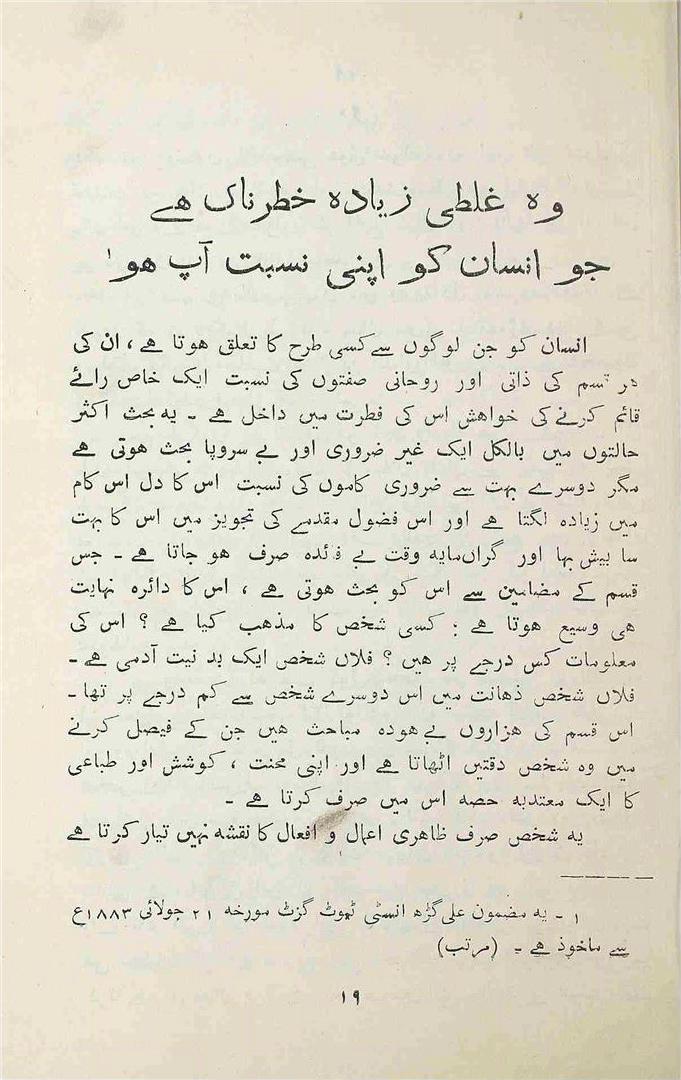 وہ غلطی زیادہ خطرناک ہے
جو انسان کو اپنی نسبت آپ ہو ۱
انسان کو جن لوگوں سے کسی طرح کا تعلق ہوتا ہے ، ان کی
ہر قسم کی ذاتی اور روحانی صفتوں کی نسبت ایک خاص رائے
قائم کرنے کی خواہش اس کی فطرت میں داخل ہے ۔ یہ بحث اکثر
حالتوں میں بالکل ایک غیر ضروری اور بے سروپا بحث ہوتی ہے
مگر دوسرے بہت سے ضروری کاموں کی نسبت اس کا دل اس کام
میں زیادہ لگتا ہے اور اس فضول مقدمے کی تجویز میں اس کا بہت
سا بیش بہا اور گراں مایہ وقت بے فائدہ صرف ہو جاتا ہے ۔ جس
قسم کے مضامین سے اس کو بحث ہوتی ہے ، اس کا دائرہ نہایت
ہی وسیع ہوتا ہے : کسی شخص کا مذہب کیا ہے ؟ اس کی
معلومات کس درجے پر ہیں ؟ فلاں شخص ایک بد نیت آدمی ہے ۔
فلاں شخص ذہانت میں اس دوسرے شخص سے کم درجے پر تھا ۔
اس قسم کی ہزاروں بے ہودہ مباحث ہیں جن کے فیصل کرنے
میں وہ شخص دقتیں اٹھاتا ہے اور اپنی محنت ، کوشش اور طباعی
کا ایک معتدبہ حصہ اس میں صرف کرتا ہے ۔
یہ شخص صرف ظاہری اعمال و افعال کا نقشہ نہیں تیار کرتا ہے
۱ ۔ یہ مضمون علی گڑھ انسٹی ٹیوٹ گزٹ مورخہ ۲۱ جولائی ۱۸۸۳ع
سے ماخوذ ہے ۔ (مرتب)
۱۹